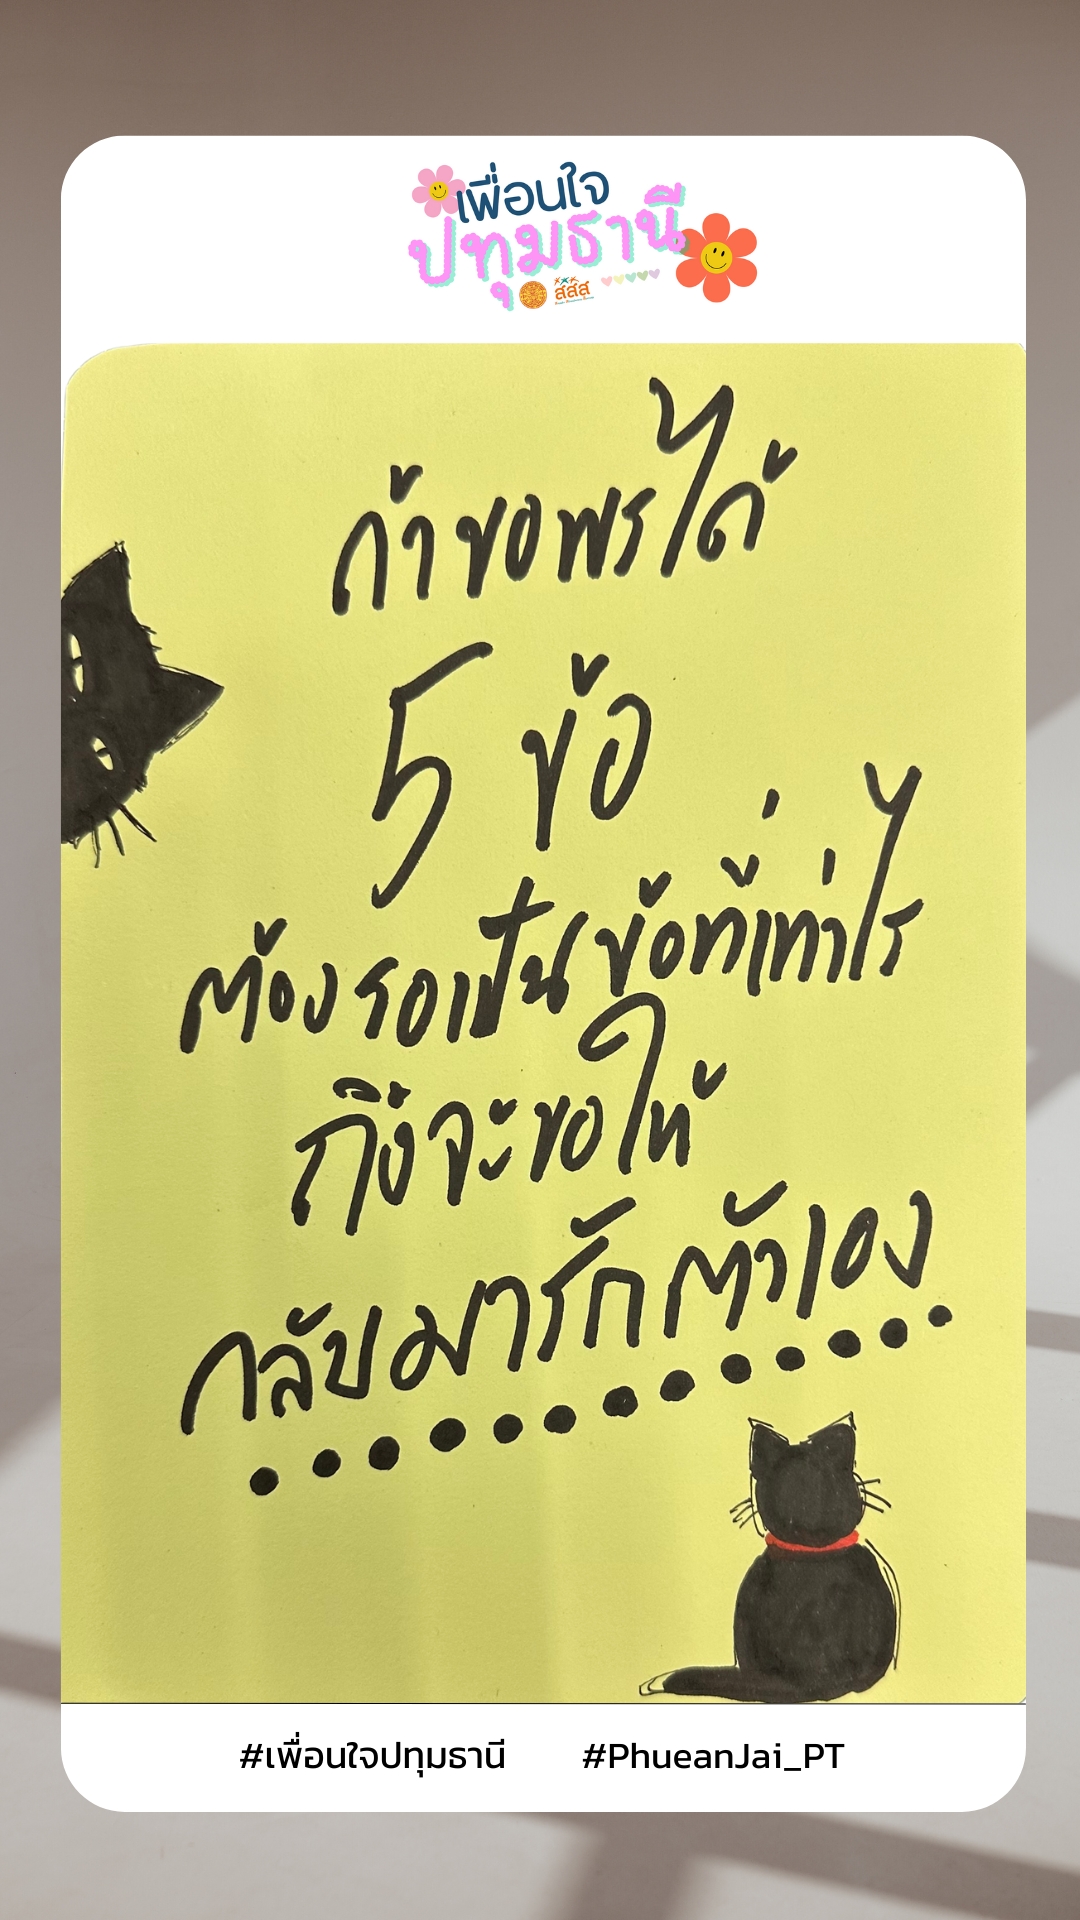 เพื่อนใจ
ปทุมธานี
สสส
ถ้าขอพรได้
5 ข้อ
ต้องรอเป็นข้อที่เท่าไร
ถึงจะขอให้
กลับมารักตัวเอง
#เพื่อนใจปทุมธานี #PhueanJai_PT